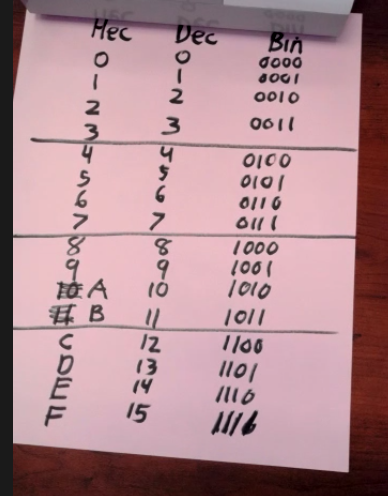 Hec Dec Bin
0 0 0000
1 1 0001
2 2 0010
3 3 0011
4 4 0100
5 5 0101
6 6 0110
7 7 0111
8 8 1000
9 9 1001
A 10 1010
B 11 1011
C 12 1100
D 13 1101
E 14 1110
F 15 1116